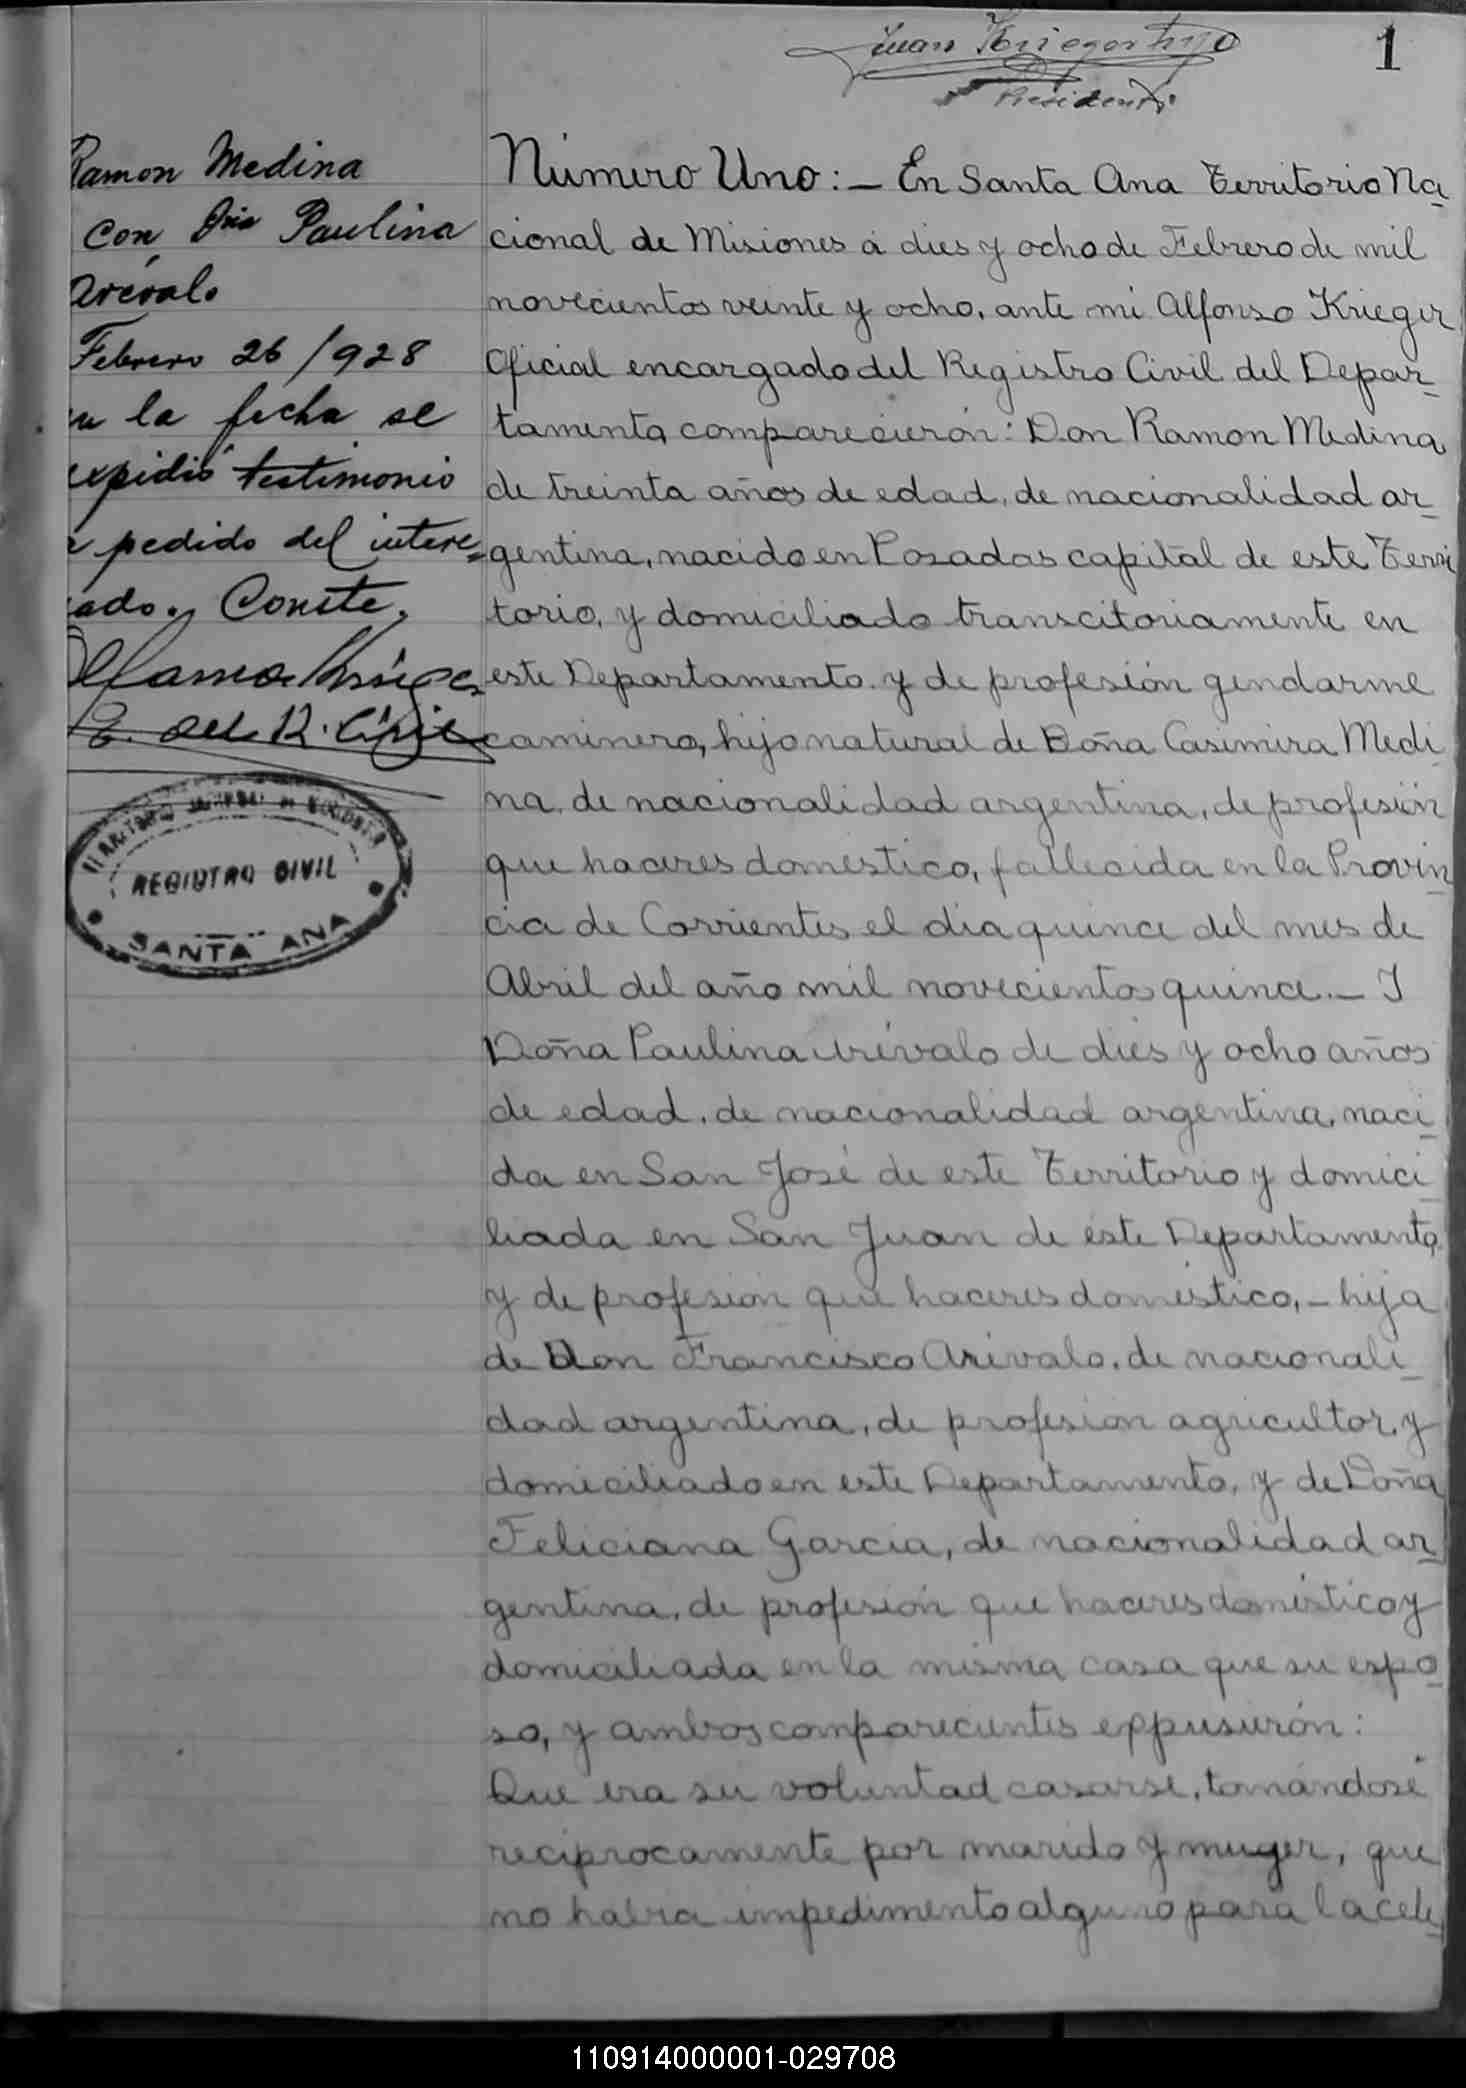 Juan Krieger hijo
1
Presidente
Ramon Medina
con Dña Paulina
Arévalo
Febrero 26/928
en la fecha se
expidió testimonio
a pedido del intere=
sado. Conste,
Alfonso Krieger
E. del R. Civil
REGISTRO CIVIL
SANTA ANA
Número Uno:— En Santa Ana Territorio Na
cional de Misiones á dies y ocho de Febrero de mil
novecientos veinte y ocho, ante mi Alfonso Krieger
Oficial encargado del Registro Civil del Depar-
tamento, comparecierón: Don Ramon Medina
de treinta años de edad, de nacionalidad ar-
gentina, nacido en Posadas capital de este Terri
torio, y domiciliado transcitoriamente en
este Departamento. y de profesión gendarme
caminero, hijo natural de Doña Casimira Medi
na, de nacionalidad argentina, de profesión
que haceres domestico, fallecida en la Provin
cia de Corrientes el dia quince del mes de
Abril del año mil novecientos quince.— I
Doña Paulina Arévalo de dies y ocho años
de edad, de nacionalidad argentina, naci
da en San José de este Territorio y domici
liada en San Juan de éste Departamento,
y de profesión que haceres doméstico,— hija
de Don Francisco Arévalo, de nacionali
dad argentina, de profesion agricultor, y
domiciliado en este Departamento, y de Doña
Feliciana Garcia, de nacionalidad ar
gentina, de profesión que haceres doméstico y
domiciliada en la misma casa que su espo
so, y ambos comparecientes exppusierón:
Que era su voluntad casarse, tomándose
reciprocamente por marido y muger, que
no habia impedimento alguno para la cele
110914000001-029708